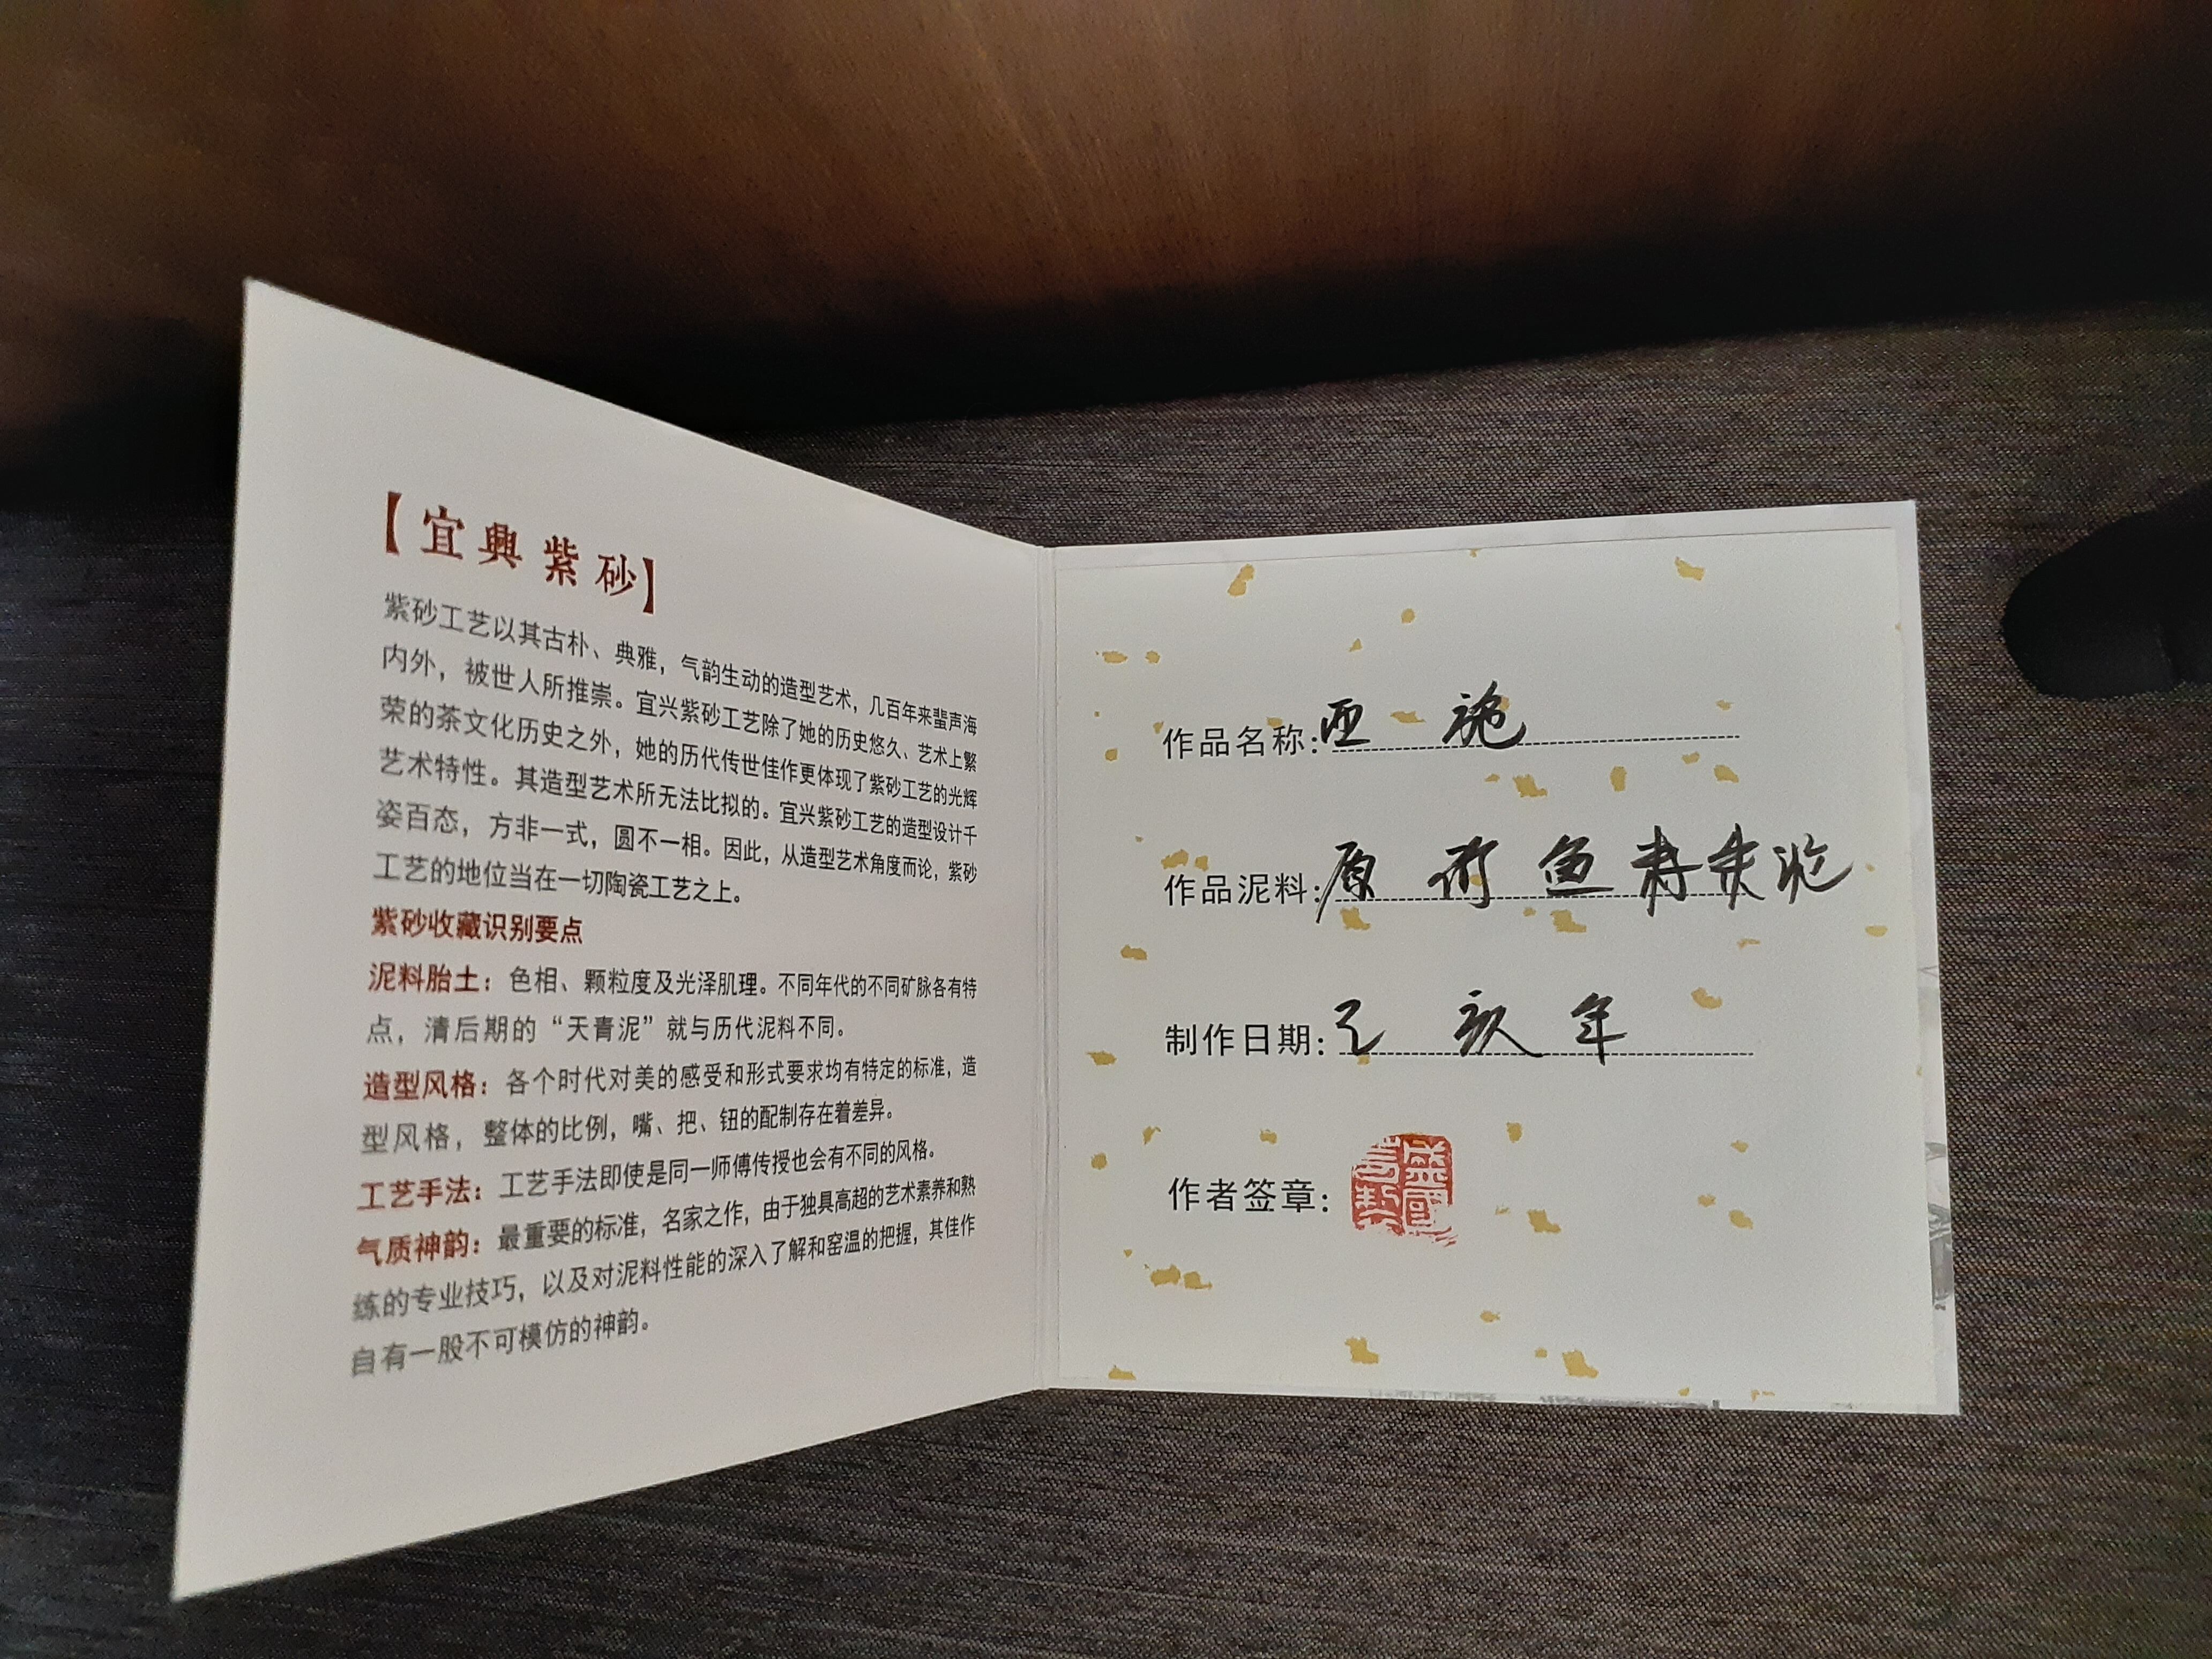 【宜興紫砂】
紫砂工艺以其古朴、典雅，气韵生动的造型艺术，几百年来蜚声海
内外，被世人所推崇。宜兴紫砂工艺除了她的历史悠久、艺术上繁
荣的茶文化历史之外，她的历代传世佳作更体现了紫砂工艺的光辉
艺术特性。其造型艺术所无法比拟的。宜兴紫砂工艺的造型设计千
姿百态，方非一式，圆不一相。因此，从造型艺术角度而论，紫砂
工艺的地位当在一切陶瓷工艺之上。
紫砂收藏识别要点
泥料胎土：色相、颗粒度及光泽肌理。不同年代的不同矿脉各有特
点，清后期的“天青泥”就与历代泥料不同。
造型风格：各个时代对美的感受和形式要求均有特定的标准，造
型风格，整体的比例，嘴、把、钮的配制存在着差异。
工艺手法：工艺手法即使是同一师傅传授也会有不同的风格。
气质神韵：最重要的标准，名家之作，由于独具高超的艺术素养和熟
练的专业技巧，以及对泥料性能的深入了解和窑温的把握，其佳作
自有一股不可模仿的神韵。
作品名称：西施
作品泥料：原
制作日期：乙亥年
作者签章：